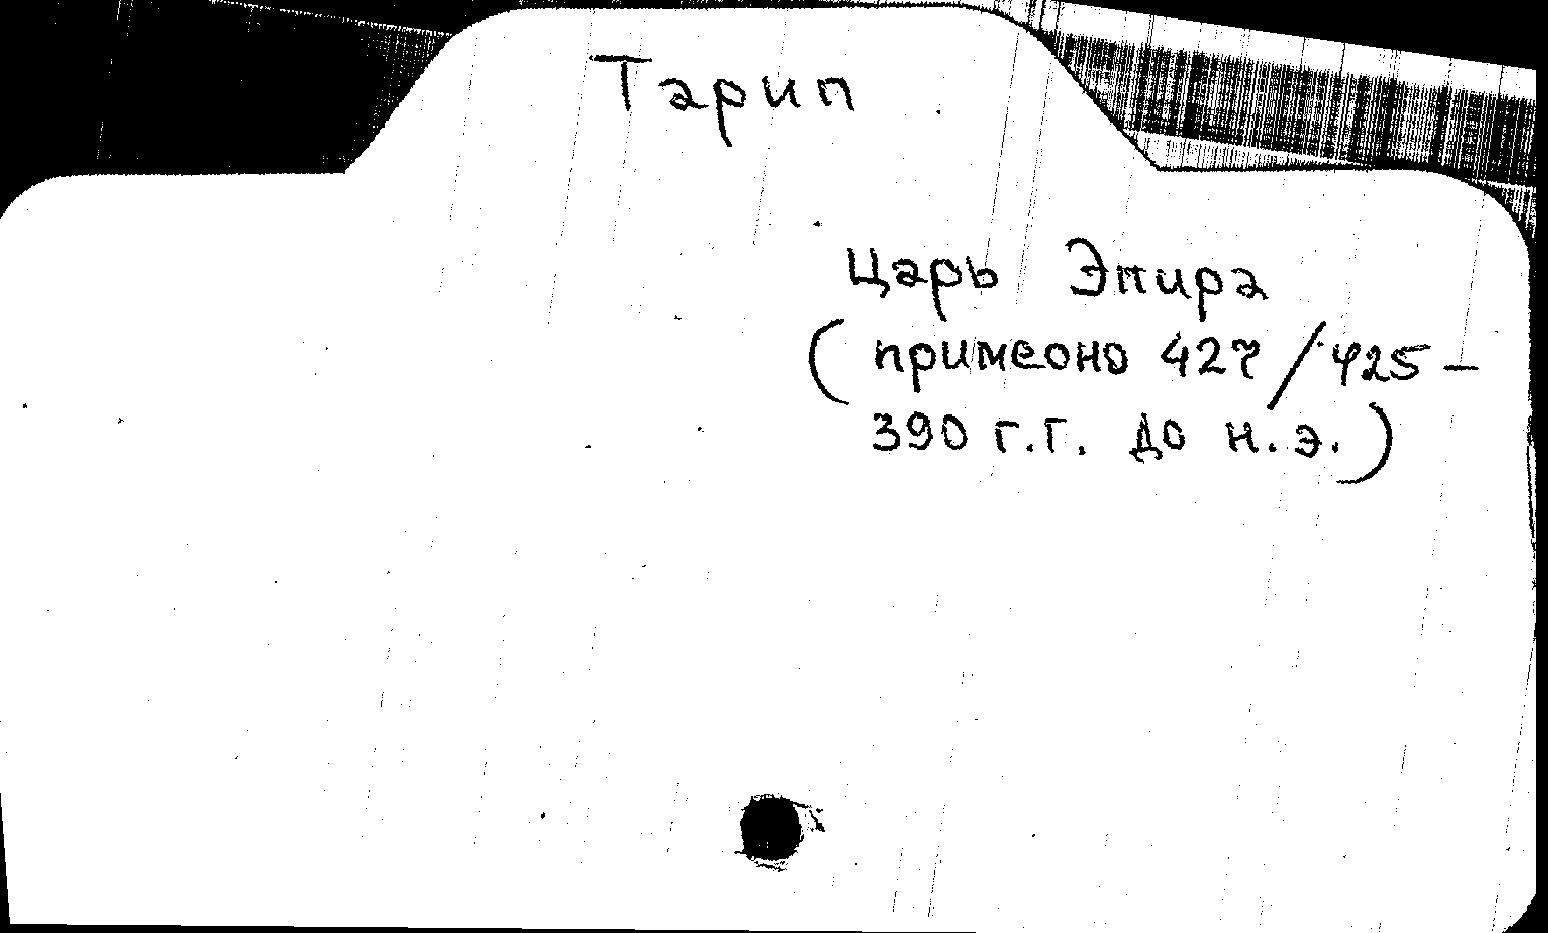 Тарип
Царь Эпира
( примеоно 427/425 –
390 г.г. до н.э.)